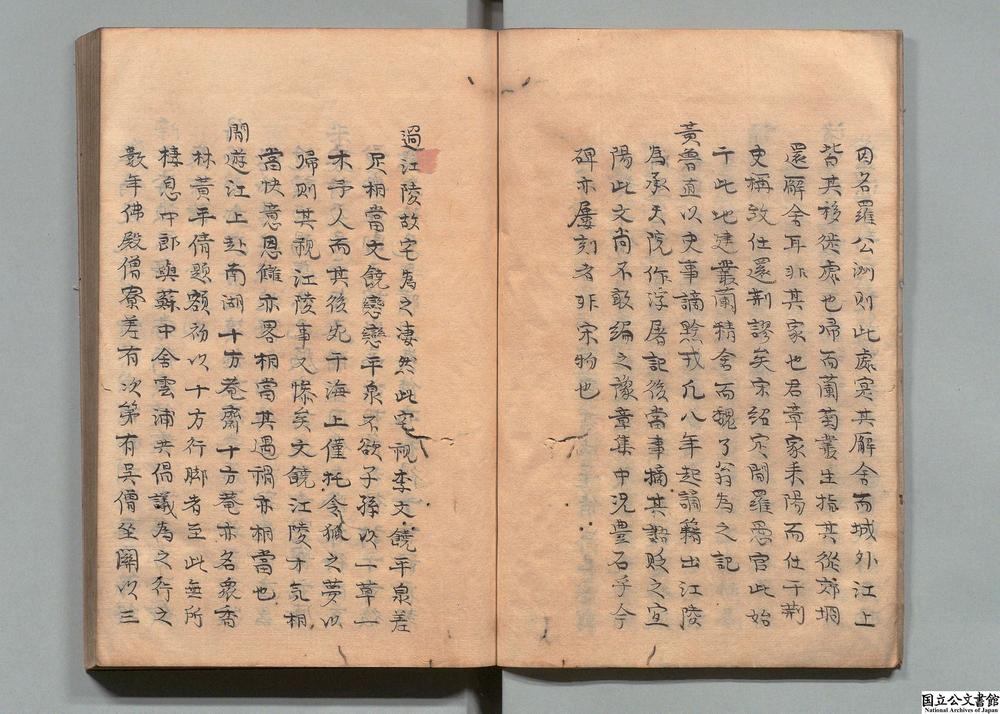 因名羅公洲則此處寔其廨舍而城外江上
皆其移徙處也帰而蘭菊叢生指其從郊垌
還廨舍耳非其家也君章家耒陽而仕于荆
史稱致仕還荆謬矣宋紹定間羅愚官此始
于此地建叢蘭精舍而魏了翁為之記
黃魯直以史事謫黔戎凡八年起謫籍出江陵
為承天院作浮屠記後當事摘其語貶之宜
陽此文尚不敢編之豫章集中况豊石乎今
碑亦屢刻者非宋物也
過江陵故宅為之凄然此宅視李文饒平泉差
足相當文饒戀戀平泉不欲子孫以一草一
木予人而其後死于海上僅托令狐之夢以
歸則其視江陵事又慘矣文饒江陵才氣相
當快意恩讎亦畧相當其遇禍亦相當也
閒遊江上赴南湖十方菴齋十方菴亦名衆香
林黃平倩題額初以十方行脚者至此無所
棲息中郎與蘇中舍雲浦共倡議為之行之
數年佛殿僧寮差有次第有吳僧坐關以三
国立公文書館
National Archives of Japan